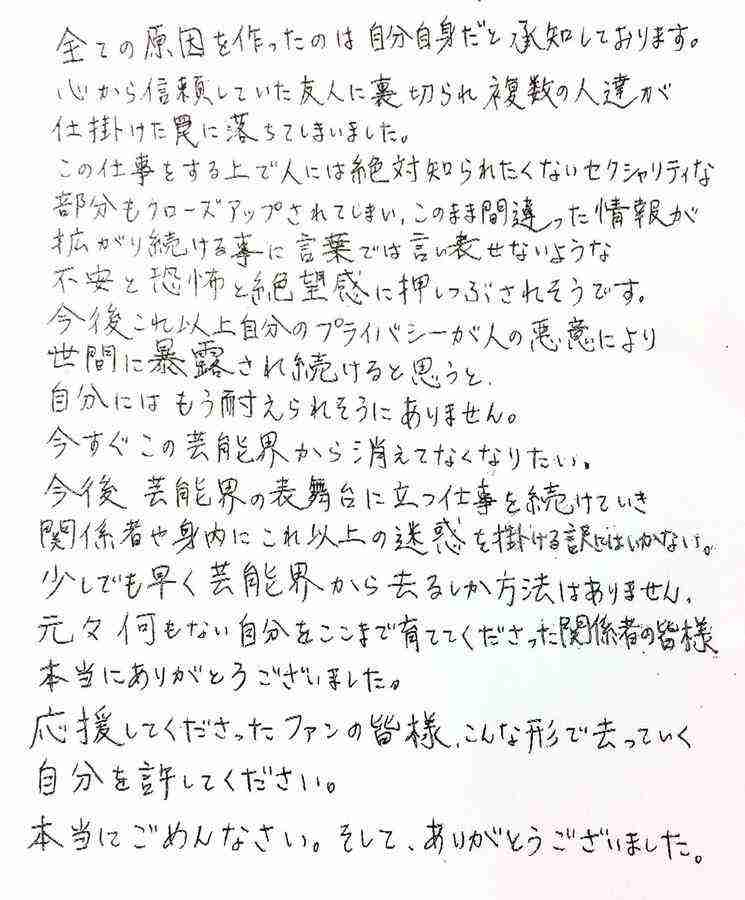 全ての原因を作ったのは自分自身だと承知しております。
心から信頼していた友人に裏切られ複数の人達が
仕掛けた罠に落ちてしまいました。
この仕事をする上で人には絶対知られたくないセクシャリティな
部分もクローズアップされてしまい、このまま間違った情報が
拡がり続ける事に言葉では言い表せないような
不安と恐怖と絶望感に押しつぶされそうです。
今後これ以上自分のプライバシーが人の悪意により
世間に暴露され続けると思うと、
自分にはもう耐えられそうにありません。
今すぐこの芸能界から消えてなくなりたい。
今後芸能界の表舞台に立つ仕事を続けていき
関係者や身内にこれ以上の迷惑を掛ける訳にはいかない。
少しでも早く芸能界から去るしか方法はありません、
元々何もない自分をここまで育ててくださった関係者の皆様
本当にありがとうございました。
応援してくださったファンの皆様、こんな形で去っていく
自分を許してください。
本当にごめんなさい。そして、ありがとうございました。